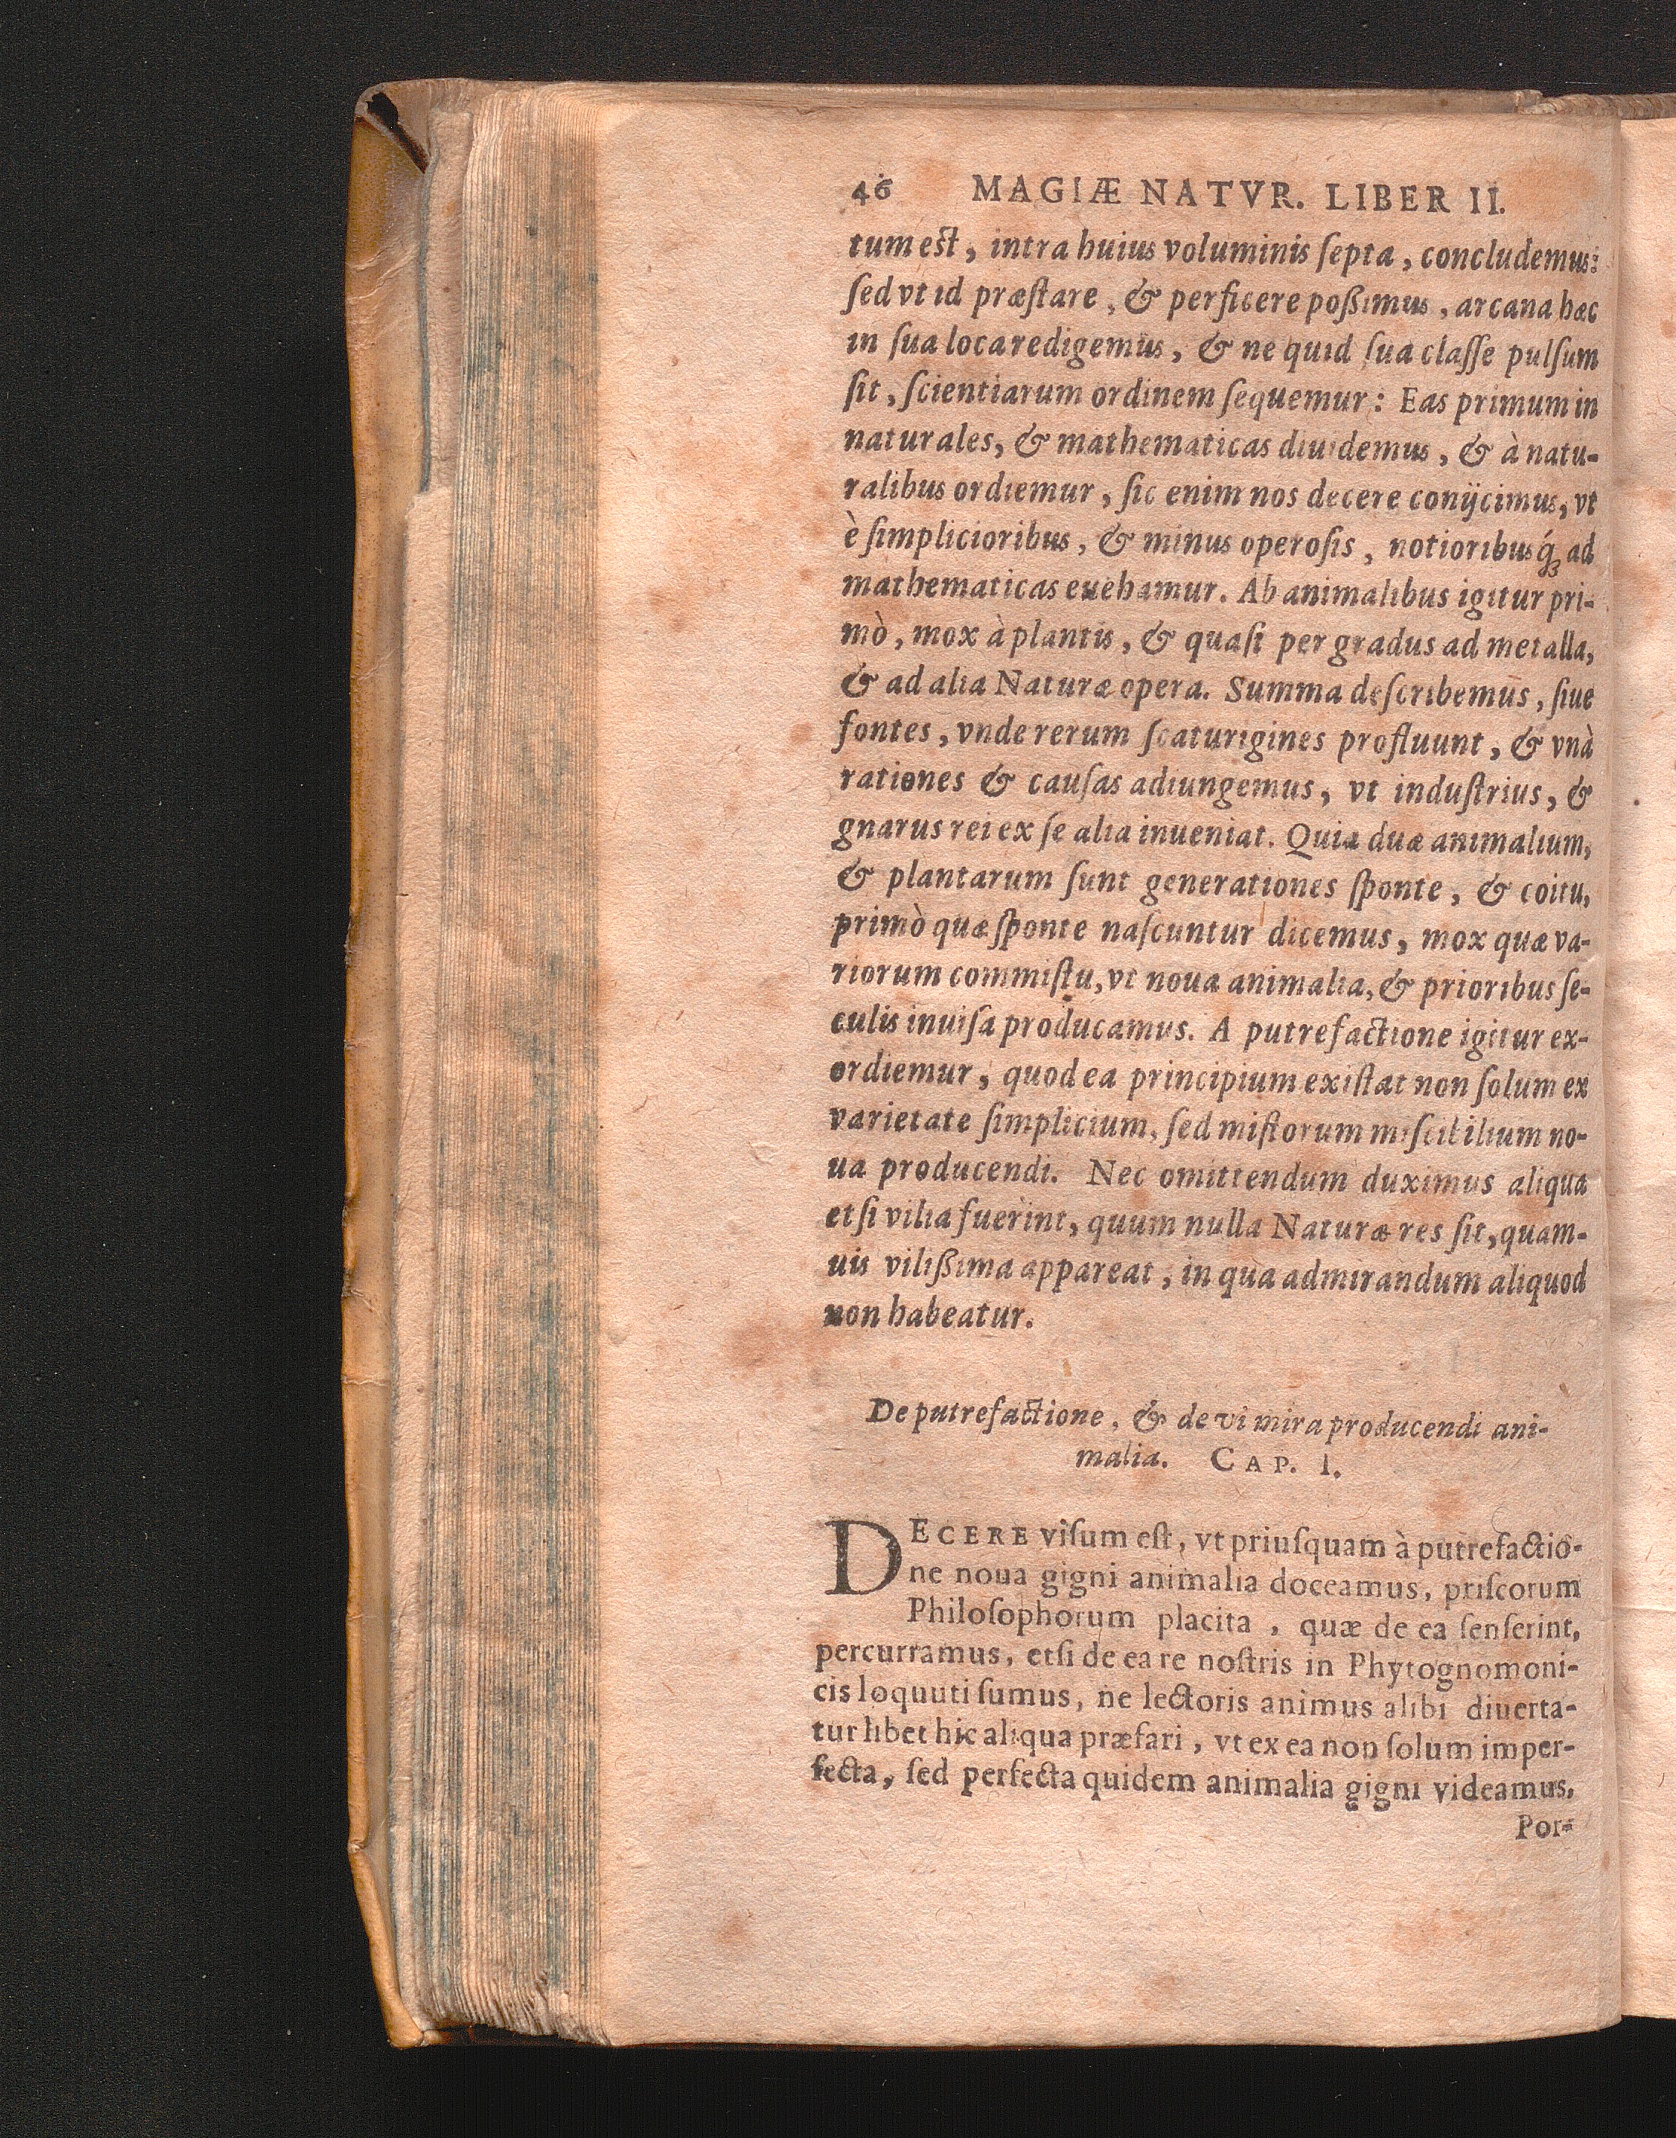 46 MAGIÆ NATVR. LIBER II.
tum est, intra huius voluminis ſepta, concludemus:
ſed vt id præſtare, & perficere poßimus, arcana hæc
in ſua loca redigemus, & ne quid ſua claſſe pulſum
ſit, ſcientiarum ordinem ſequemur: Eas primum in
naturales, & mathematicas diuidemus, & à natu-
ralibus ordiemur, ſic enim nos decere conijcimus, vt
è ſimplicioribus, & minus operoſis, notioribusq́ꝫ ad
mathematicas euehamur. Ab animalibus igitur pri-
mò, mox à plantis, & quaſi per gradus ad metalla,
& ad alia Naturæ opera. Summa deſcribemus, ſiue
fontes, vnde rerum ſcaturigines profluunt, & vnà
rationes & cauſas adiungemus, vt induſtrius, &
gnarus rei ex ſe alia inueniat. Quia duæ animalium,
& plantarum ſunt generationes ſponte, & coitu,
primò quæ ſponte naſcuntur dicemus, mox quæ va-
riorum commiſtu, vt noua animalia, & prioribus ſe-
culis inuiſa producamus. A putrefactione igitur ex-
ordiemur, quod ea principium exiſtat non ſolum ex
varietate ſimplicium, ſed miſtorum miſcibilium no-
ua producendi. Nec omittendum duximus aliqua
etſi vilia fuerint, quum nulla Naturæ res ſit, quam-
uis vilißima appareat, in qua admirandum aliquod
non habeatur.
De putrefactione, & de vi mira producendi ani-
malia. CAP. I.
DECERE viſum eſt, vt priuſquam à putrefactio-
ne noua gigni animalia doceamus, priſcorum
Philoſophorum placita, quæ de ea ſenſerint,
percurramus, etſi de ea re noſtris in Phytognomoni-
cis loquuti ſumus, ne lectoris animus alibi diuerta-
tur libet hic aliqua præfari, vt ex ea non ſolum imper-
fecta, ſed perfecta quidem animalia gigni videamus,
Por-